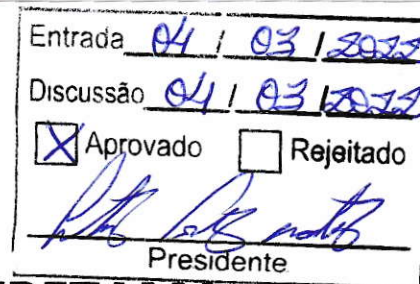 Entrada 04 / 03 / 2022
Discussão 04 / 03 / 2022
X Aprovado Rejeitado
Presidente